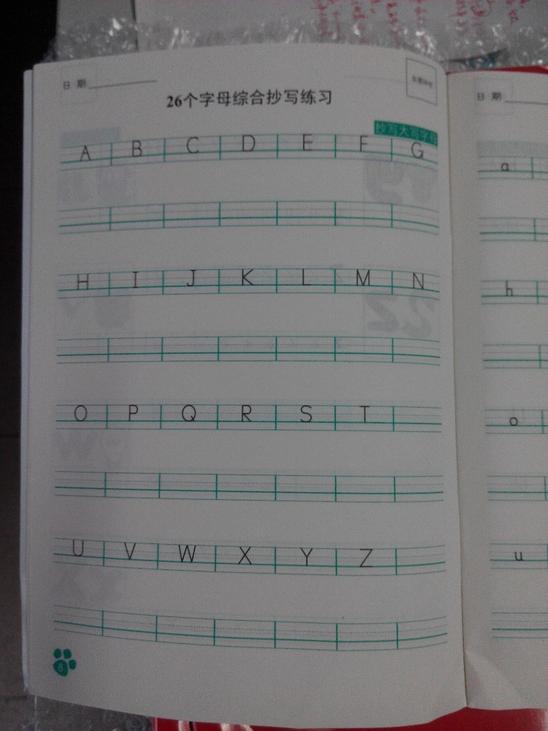 日 期
26个字母综合抄写练习
抄写大写字母
A B C D E F G
H I J K L M N
O P Q R S T
U V W X Y Z
8
日 期
a
h
o
u